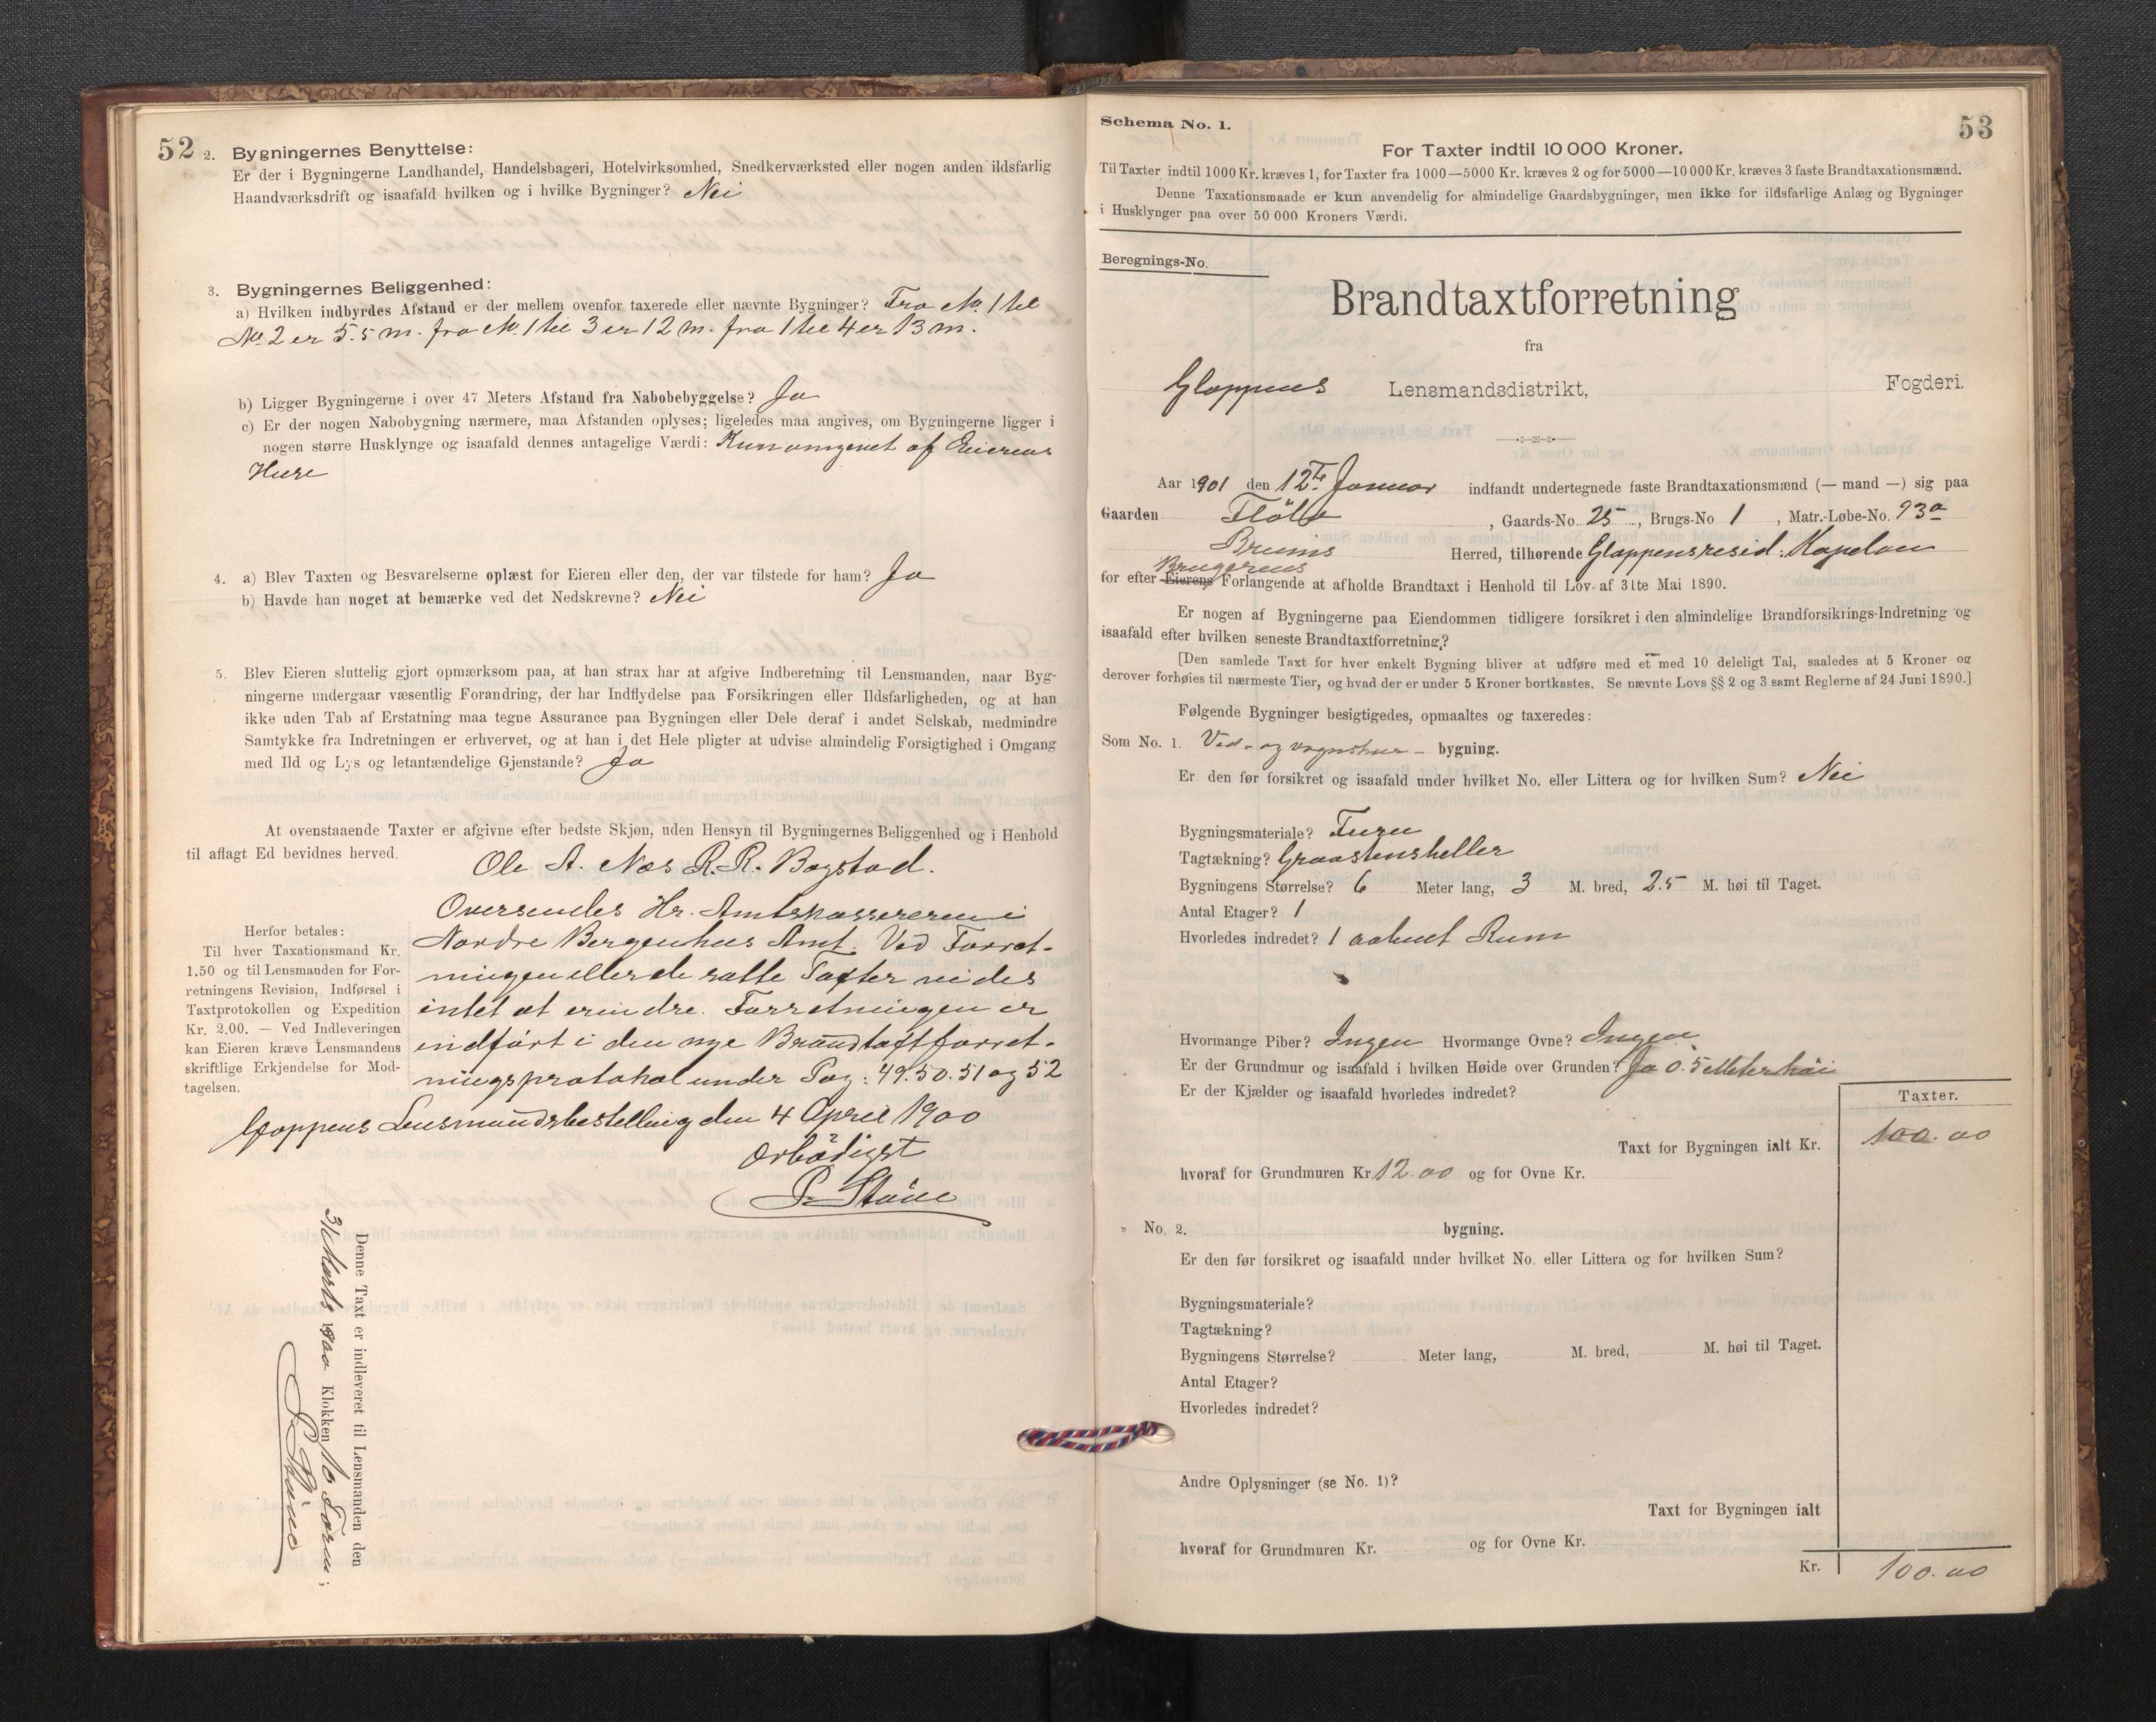 52
2. Bygningernes Benyttelse:
Er der i Bygningerne Landhandel, Handelsbageri, Hotelvirksomhed, Snedkerværksted eller nogen anden ildsfarlig
Haandværksdrift og isaafald hvilken og i hvilke Bygninger? Nei
3. Bygningernes Beliggenhed:
a) Hvilken indbyrdes Afstand er der mellem ovenfor taxerede eller nævnte Bygninger? Fra No. 1 til
No. 2 er 5.5 m. fra No. 1 til 3 er 12 m. fra 1 til 4 er 13 m.
b) Ligger Bygningerne i over 47 Meters Afstand fra Nabobebyggelse? Ja
c) Er der nogen Nabobygning nærmere, maa Afstanden oplyses; ligeledes maa angives, om Bygningerne ligger i
nogen større Husklynge og isaafald dennes antagelige Værdi: Kun omgivet af Eierens
Huse
4. a) Blev Taxten og Besvarelserne oplæst for Eieren eller den, der var tilstede for ham? Ja
b) Havde han noget at bemærke ved det Nedskrevne? Nei
5. Blev Eieren sluttelig gjort opmærksom paa, at han strax har at afgive Indberetning til Lensmanden, naar Byg-
ningerne undergaar væsentlig Forandring, der har Indflydelse paa Forsikringen eller Ildsfarligheden, og at han
ikke uden Tab af Erstatning maa tegne Assurance paa Bygningen eller Dele deraf i andet Selskab, medmindre
Samtykke fra Indretningen er erhvervet, og at han i det Hele pligter at udvise almindelig Forsigtighed i Omgang
med Ild og Lys og letantændelige Gjenstande? Ja
At ovenstaaende Taxter er afgivne efter bedste Skjøn, uden Hensyn til Bygningernes Beliggenhed og i Henhold
til aflagt Ed bevidnes herved.
Ole A. Næs R. R. Bogstad.
Oversendes Hr. Amtskassereren i
Nordre Bergenhus Amt. Ved Forret-
ningen eller de satte Taxter vides
intet at erindre. Forretningen er
indført i den nye Brandtaxtforret-
ningsprotokol under Pag: 49. 50. 51 og 52
Gloppens Lensmandsbestilling den 4 April 1900
Ørbødigst
P. Støue
Herfor betales:
Til hver Taxationsmand Kr.
1.50 og til Lensmanden for For-
retningens Revision, Indførsel i
Taxtprotokollen og Expedition
Kr. 2.00. — Ved Indleveringen
kan Eieren kræve Lensmandens
skriftlige Erkjendelse for Mod-
tagelsen.
Denne Taxt er indleveret til Lensmanden den
31 Marts 1900 Klokken 10 Form;
53
Schema No. 1.
For Taxter indtil 10 000 Kroner.
Til Taxter indtil 1000 Kr. kræves 1, for Taxter fra 1000—5000 Kr. kræves 2 og for 5000—10 000 Kr. kræves 3 faste Brandtaxationsmænd.
Denne Taxationsmaade er kun anvendelig for almindelige Gaardsbygninger, men ikke for ildsfarlige Anlæg og Bygninger
i Husklynger paa over 50 000 Kroners Værdi.
Beregnings-No.
Brandtaxtforretning
fra
Gloppens Lensmandsdistrikt, Fogderi.
Aar 1901 den 12te Januar indfandt undertegnede faste Brandtaxationsmænd (— mand —) sig paa
Gaarden Fløtte, Gaards-No. 25, Brugs-No 1, Matr.-Løbe-No. 93a
Breims Herred, tilhørende Gloppens resid. Kapelan
Brugerens
for efter Eierens Forlangende at afholde Brandtaxt i Henhold til Lov af 31te Mai 1890.
Er nogen af Bygningerne paa Eiendommen tidligere forsikret i den almindelige Brandforsikrings-Indretning og
isaafald efter hvilken seneste Brandtaxtforretning?
[Den samlede Taxt for hver enkelt Bygning bliver at udføre med et med 10 deleligt Tal, saaledes at 5 Kroner og
derover forhøies til nærmeste Tier, og hvad der er under 5 Kroner bortkastes. Se nævnte Lovs §§ 2 og 3 samt Reglerne af 24 Juni 1890.]
Følgende Bygninger besigtigedes, opmaaltes og taxeredes:
Som No. 1. Ved- og vognskur- bygning.
Er den før forsikret og isaafald under hvilket No. eller Littera og for hvilken Sum? Nei
Bygningsmateriale? Furu
Tagtækning? Graastensheller
Bygningens Størrelse? 6 Meter lang, 3 M. bred, 2.5 M. høi til Taget.
Antal Etager? 1
Hvorledes indredet? 1 aabent Rum
Hvormange Piber? Ingen Hvormange Ovne? Ingen
Er der Grundmur og isaafald i hvilken Høide over Grunden? Ja 0.5 Meter høi
Er der Kjælder og isaafald hvorledes indredet?
Taxter.
Taxt for Bygningen ialt Kr. 100.00
hvoraf for Grundmuren Kr. 12.00 og for Ovne Kr.
" No. 2. bygning.
Er den før forsikret og isaafald under hvilket No. eller Littera og for hvilken Sum?
Bygningsmateriale?
Tagtækning?
Bygningens Størrelse? Meter lang, M. bred, M. høi til Taget.
Antal Etager?
Hvorledes indredet?
Andre Oplysninger (se No. 1)?
Taxt for Bygningen ialt
hvoraf for Grundmuren Kr. og for Ovne Kr.
Kr. 100.00